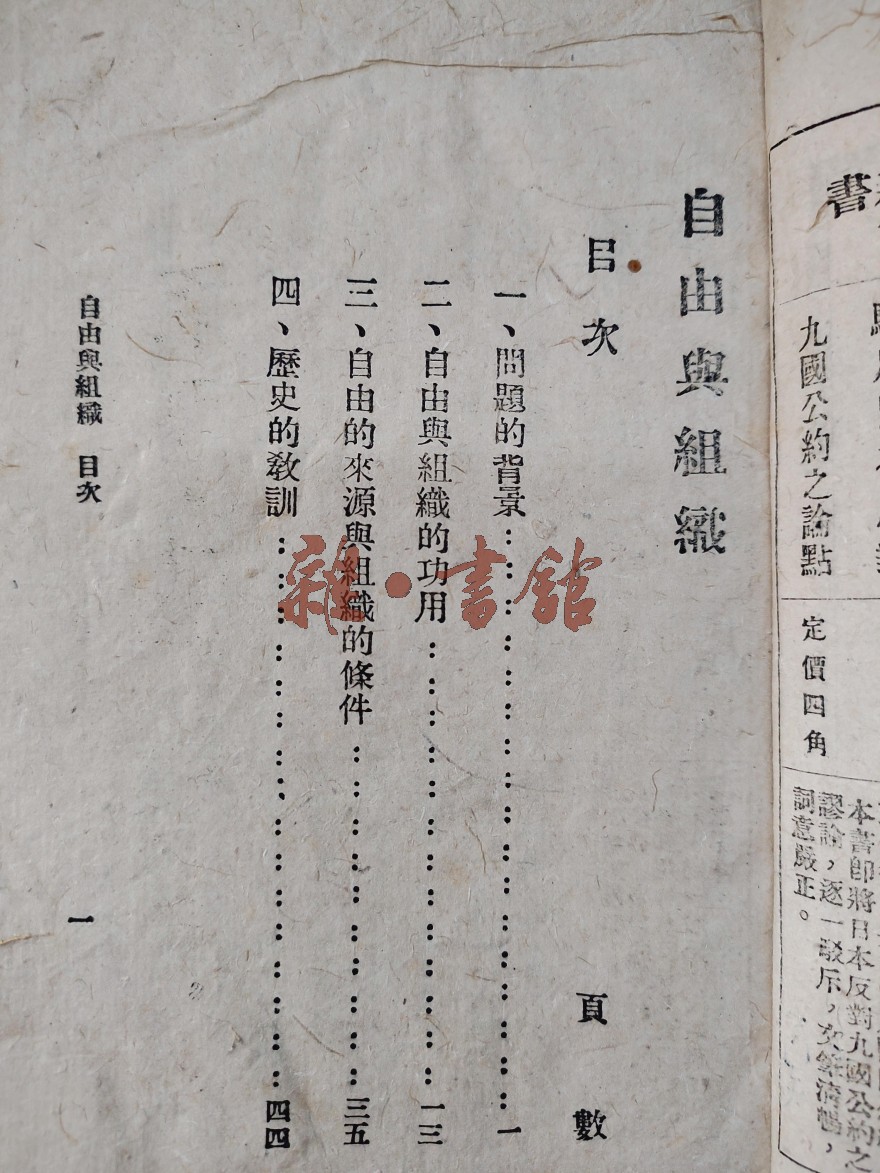 書
九國公約之論點
定價四角
本書卽將日本反對九國公約之
謬論，逐一駁斥，文筆流暢，
詞意嚴正。
自由與組織
目次 頁數
一、問題的背景 一
二、自由與組織的功用 一三
三、自由的來源與組織的條件 三五
四、歷史的敎訓 四四
自由與組織 目次
一
雜·書館